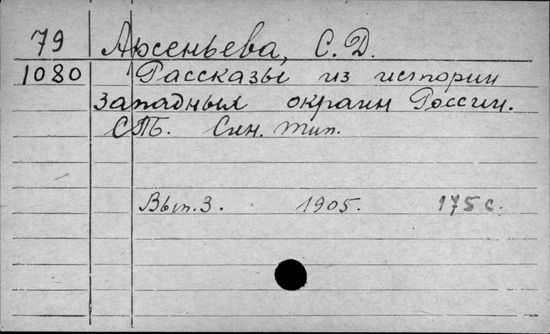 79 Арсеньева, С. Д.
1080 Рассказы из истории
западных окраин России.
СПб. Син. тип.
Вып. 3. 1905. 175 с.